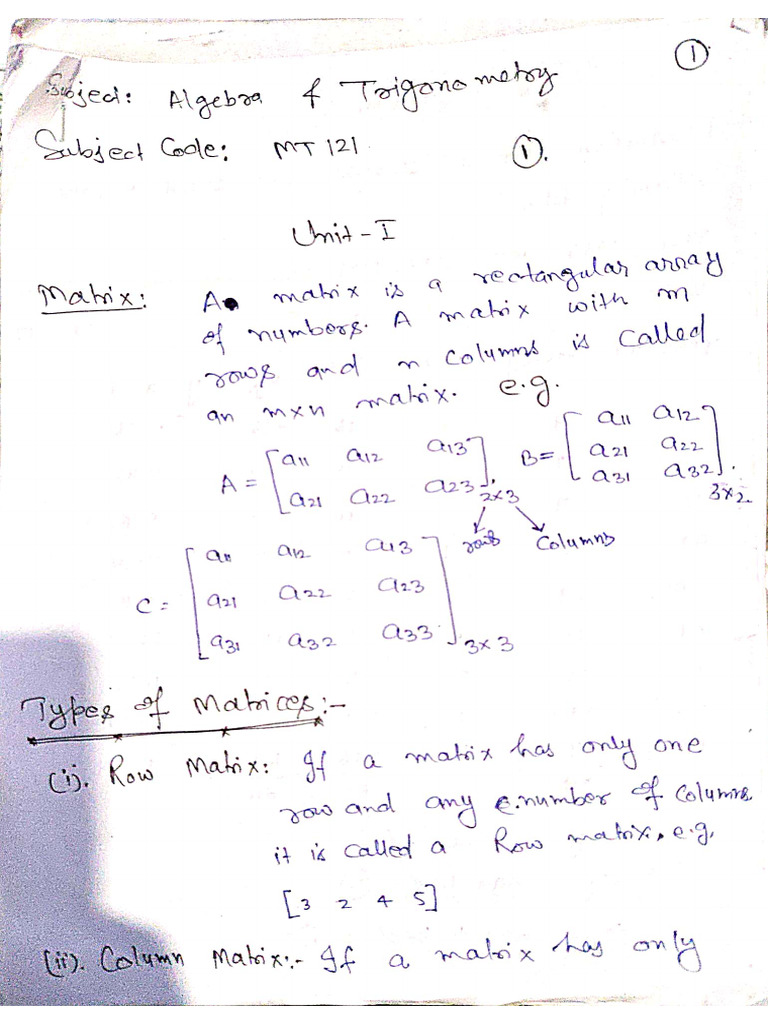 ①
Subject: Algebra & Trigonometry
Subject Code: MT 121 ①.
Unit - I
Matrix: A matrix is a rectangular array
of numbers. A matrix with m
rows and n columns is called
an m×n matrix. e.g.
A = [a11 a12 a13
a21 a22 a23]. 2×3
B= [a11 a12
a21 a22
a31 a32]. 3×2
rows Columns
C = [a11 a12 a13
a21 a22 a23
a31 a32 a33] 3×3
Types of Matrices:-
(i). Row Matrix: If a matrix has only one
row and any number of columns
it is called a Row matrix, e.g,
[3 2 4 5]
(ii). Column Matrix:- If a matrix has only